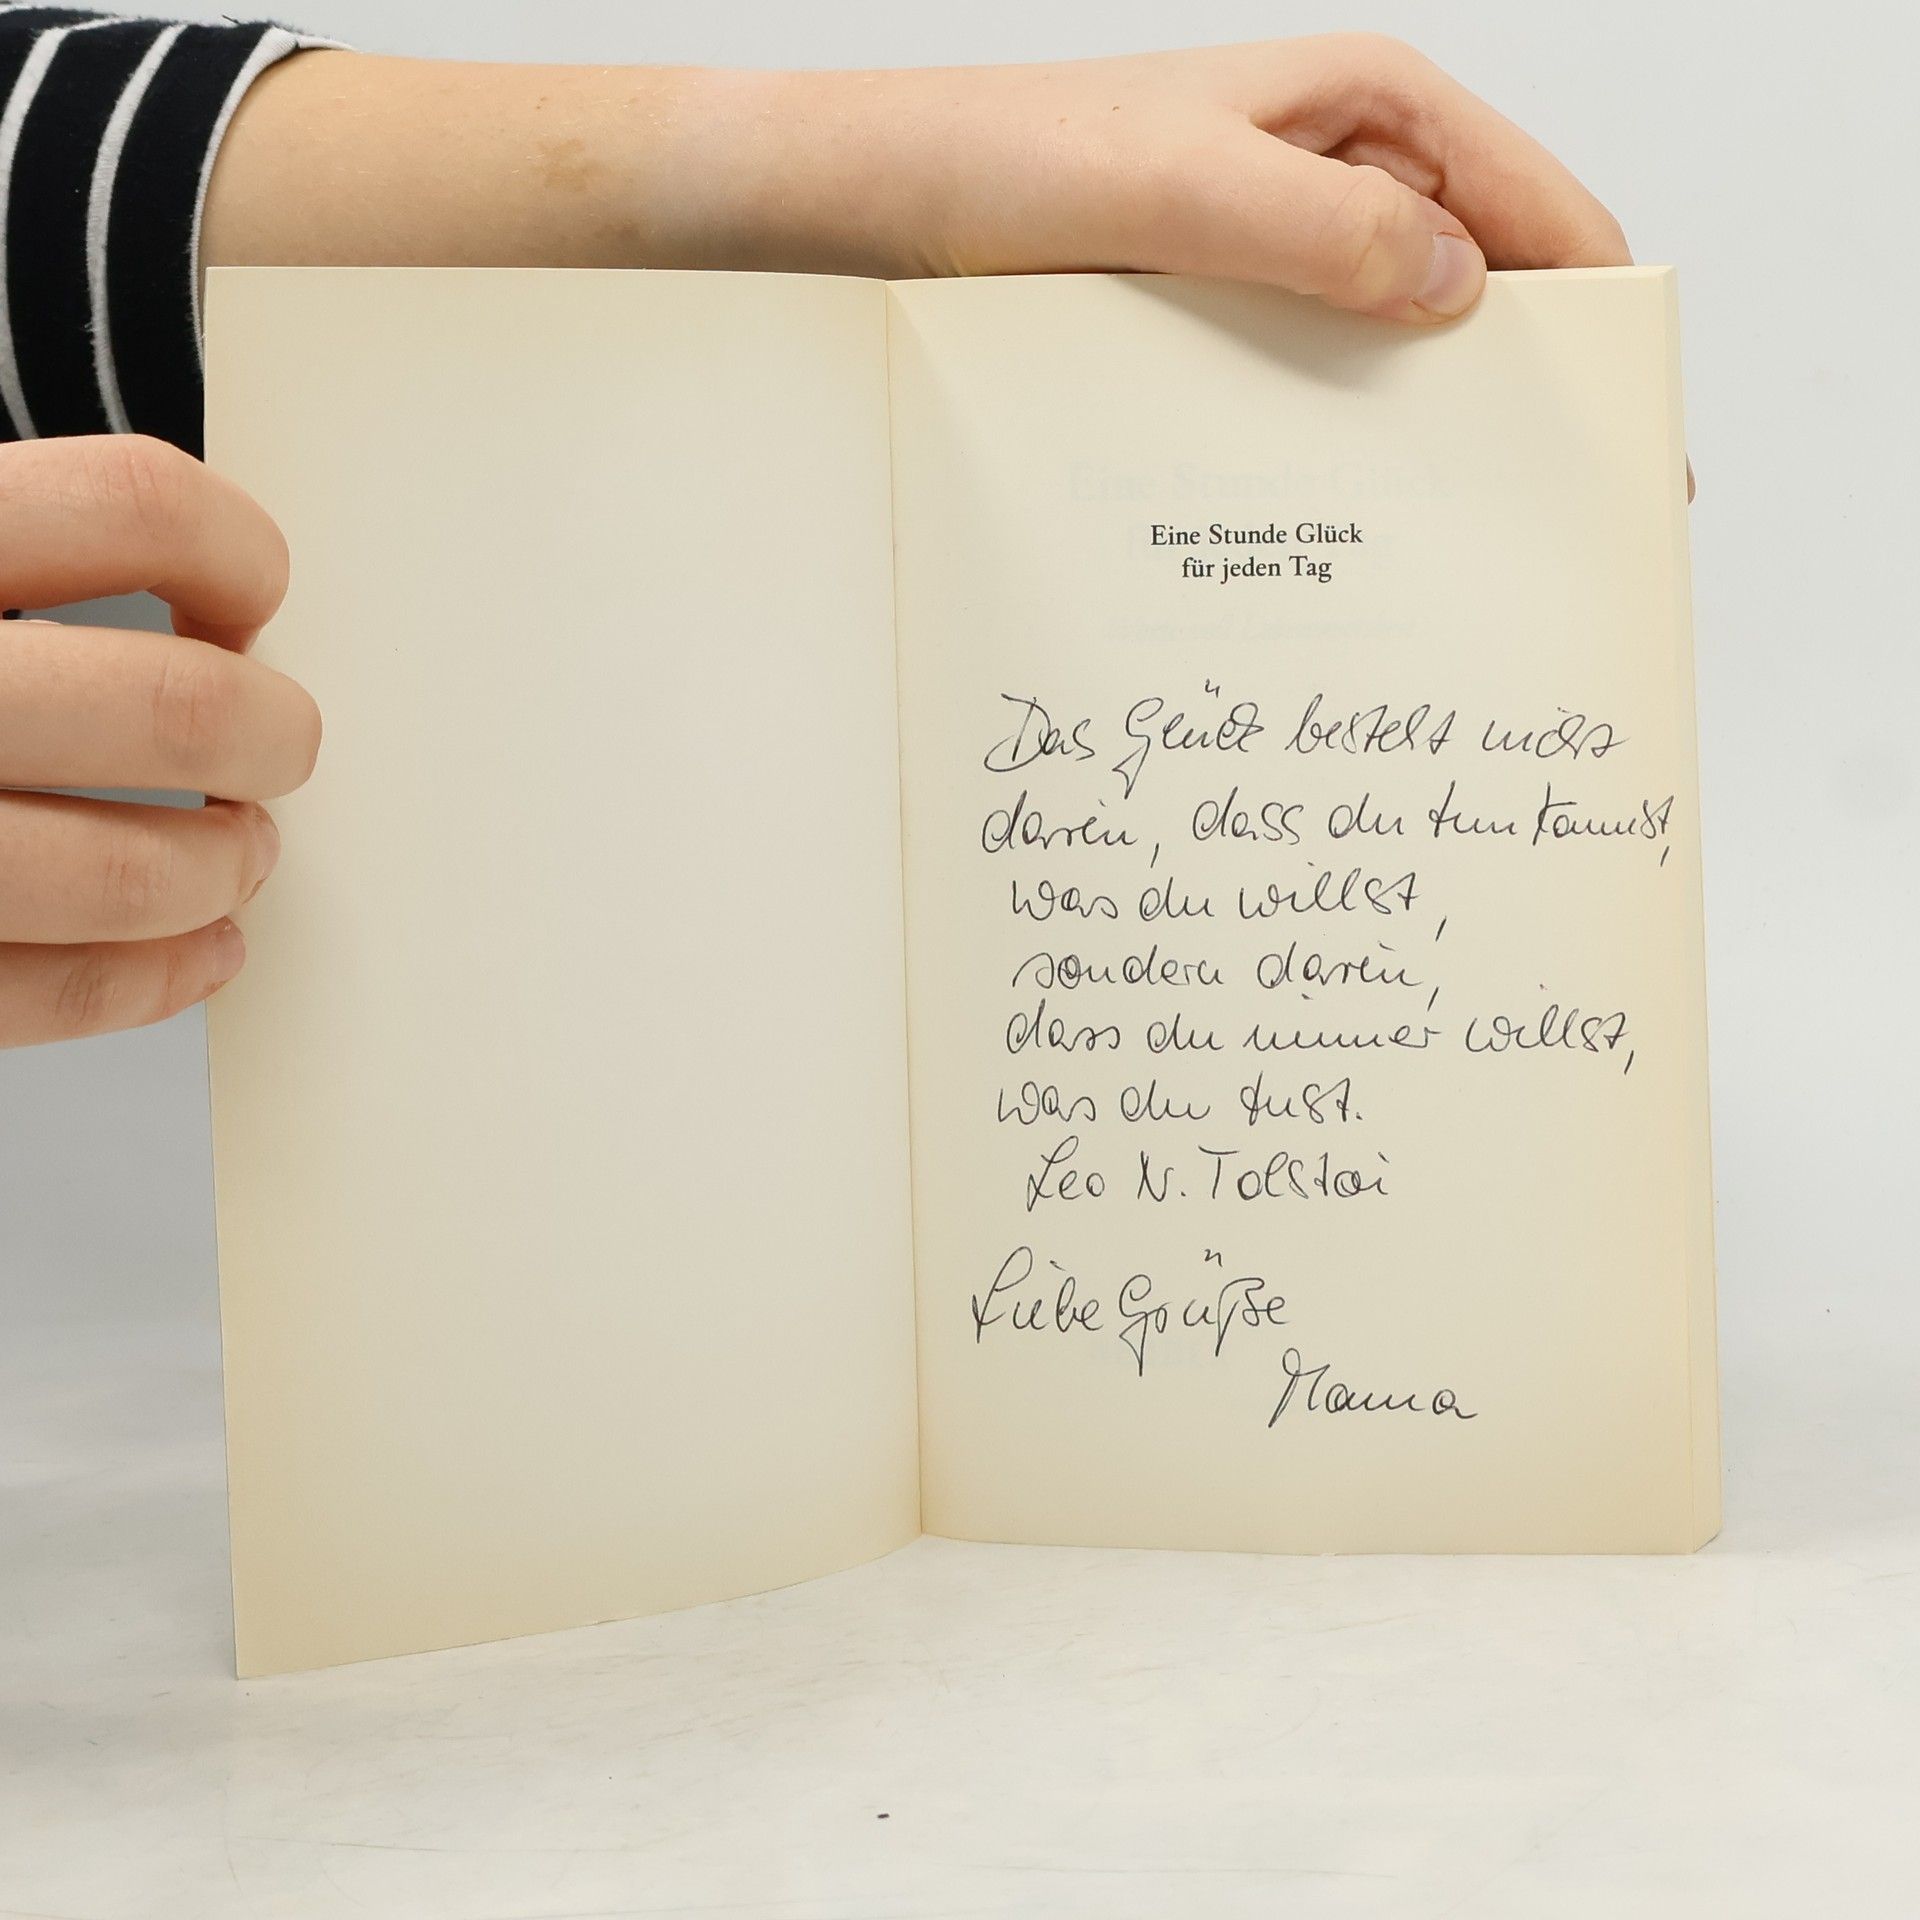 Eine Stunde Glück
für jeden Tag
Das Glück besteht nicht
darin, dass du tun kannst,
was du willst,
sondern darin,
dass du immer willst,
was du tust.
Leo N. Tolstoi
Liebe Grüße
Mama